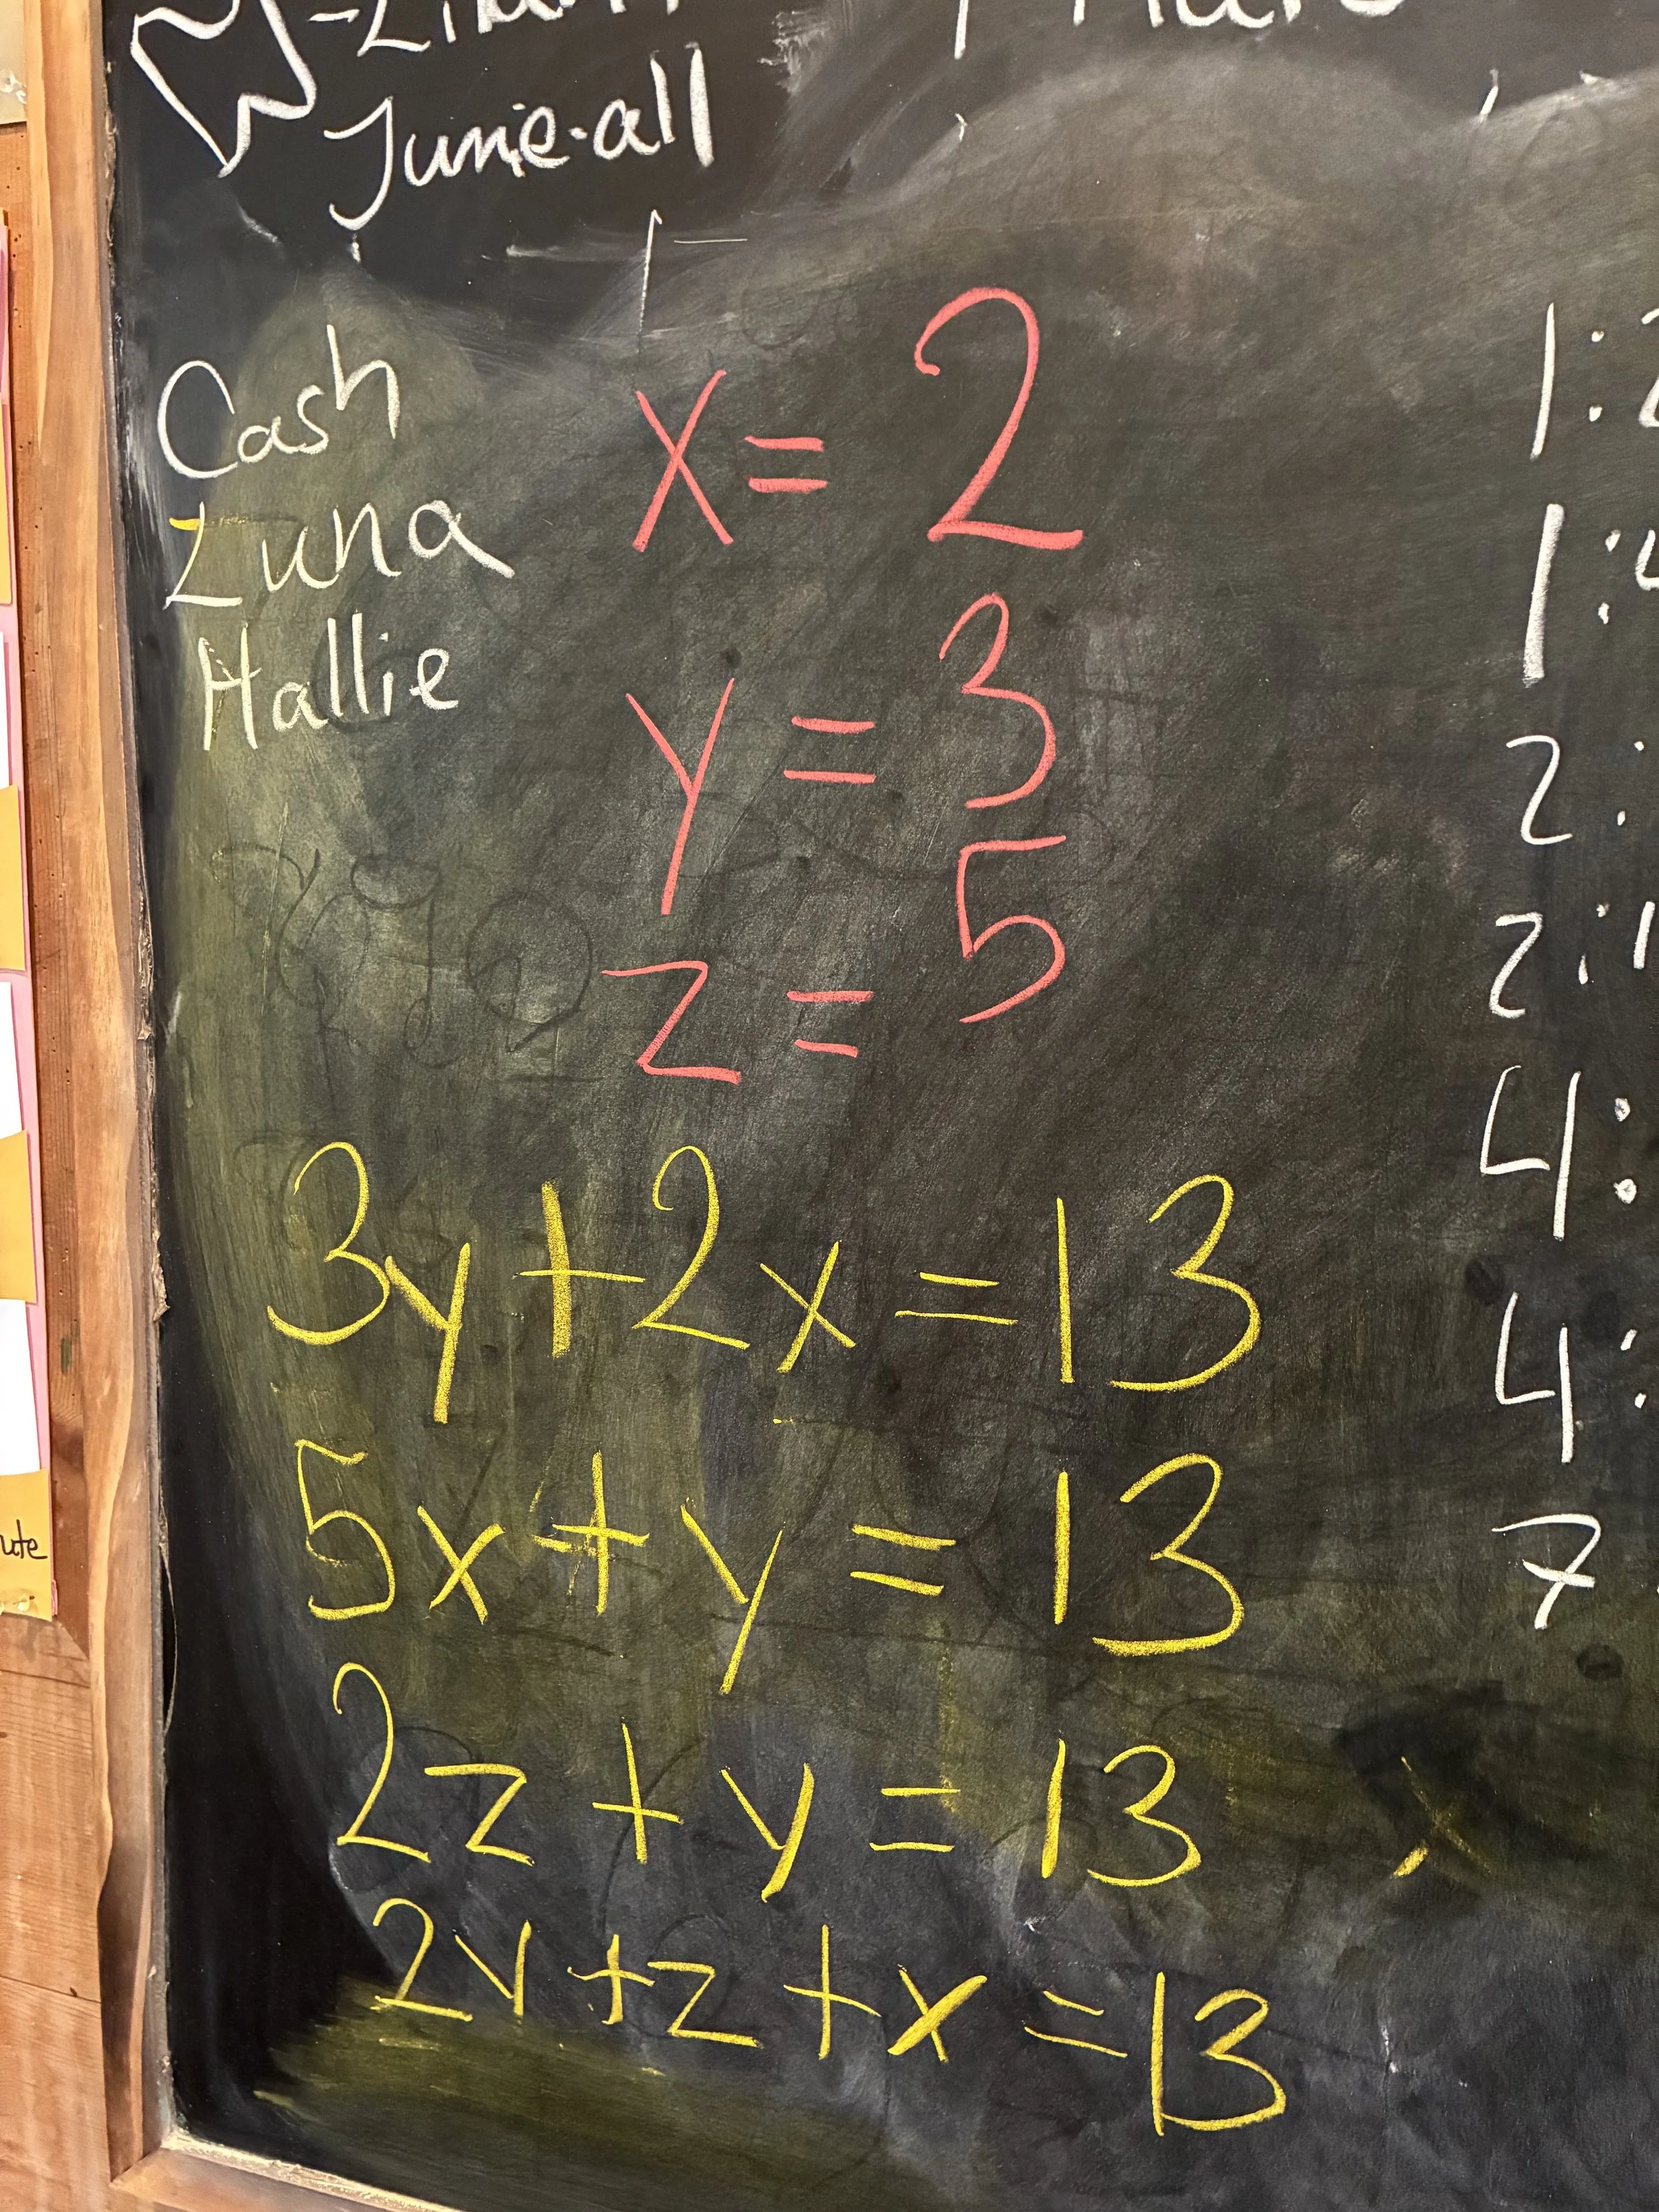 June-all
Cash
Luna
Hallie
x = 2
y = 3
z = 5
3y + 2x = 13
5x + y = 13
2z + y = 13
2y + z + x = 13
1:2
1:4
2:
2:1
4:
4:
7
ute